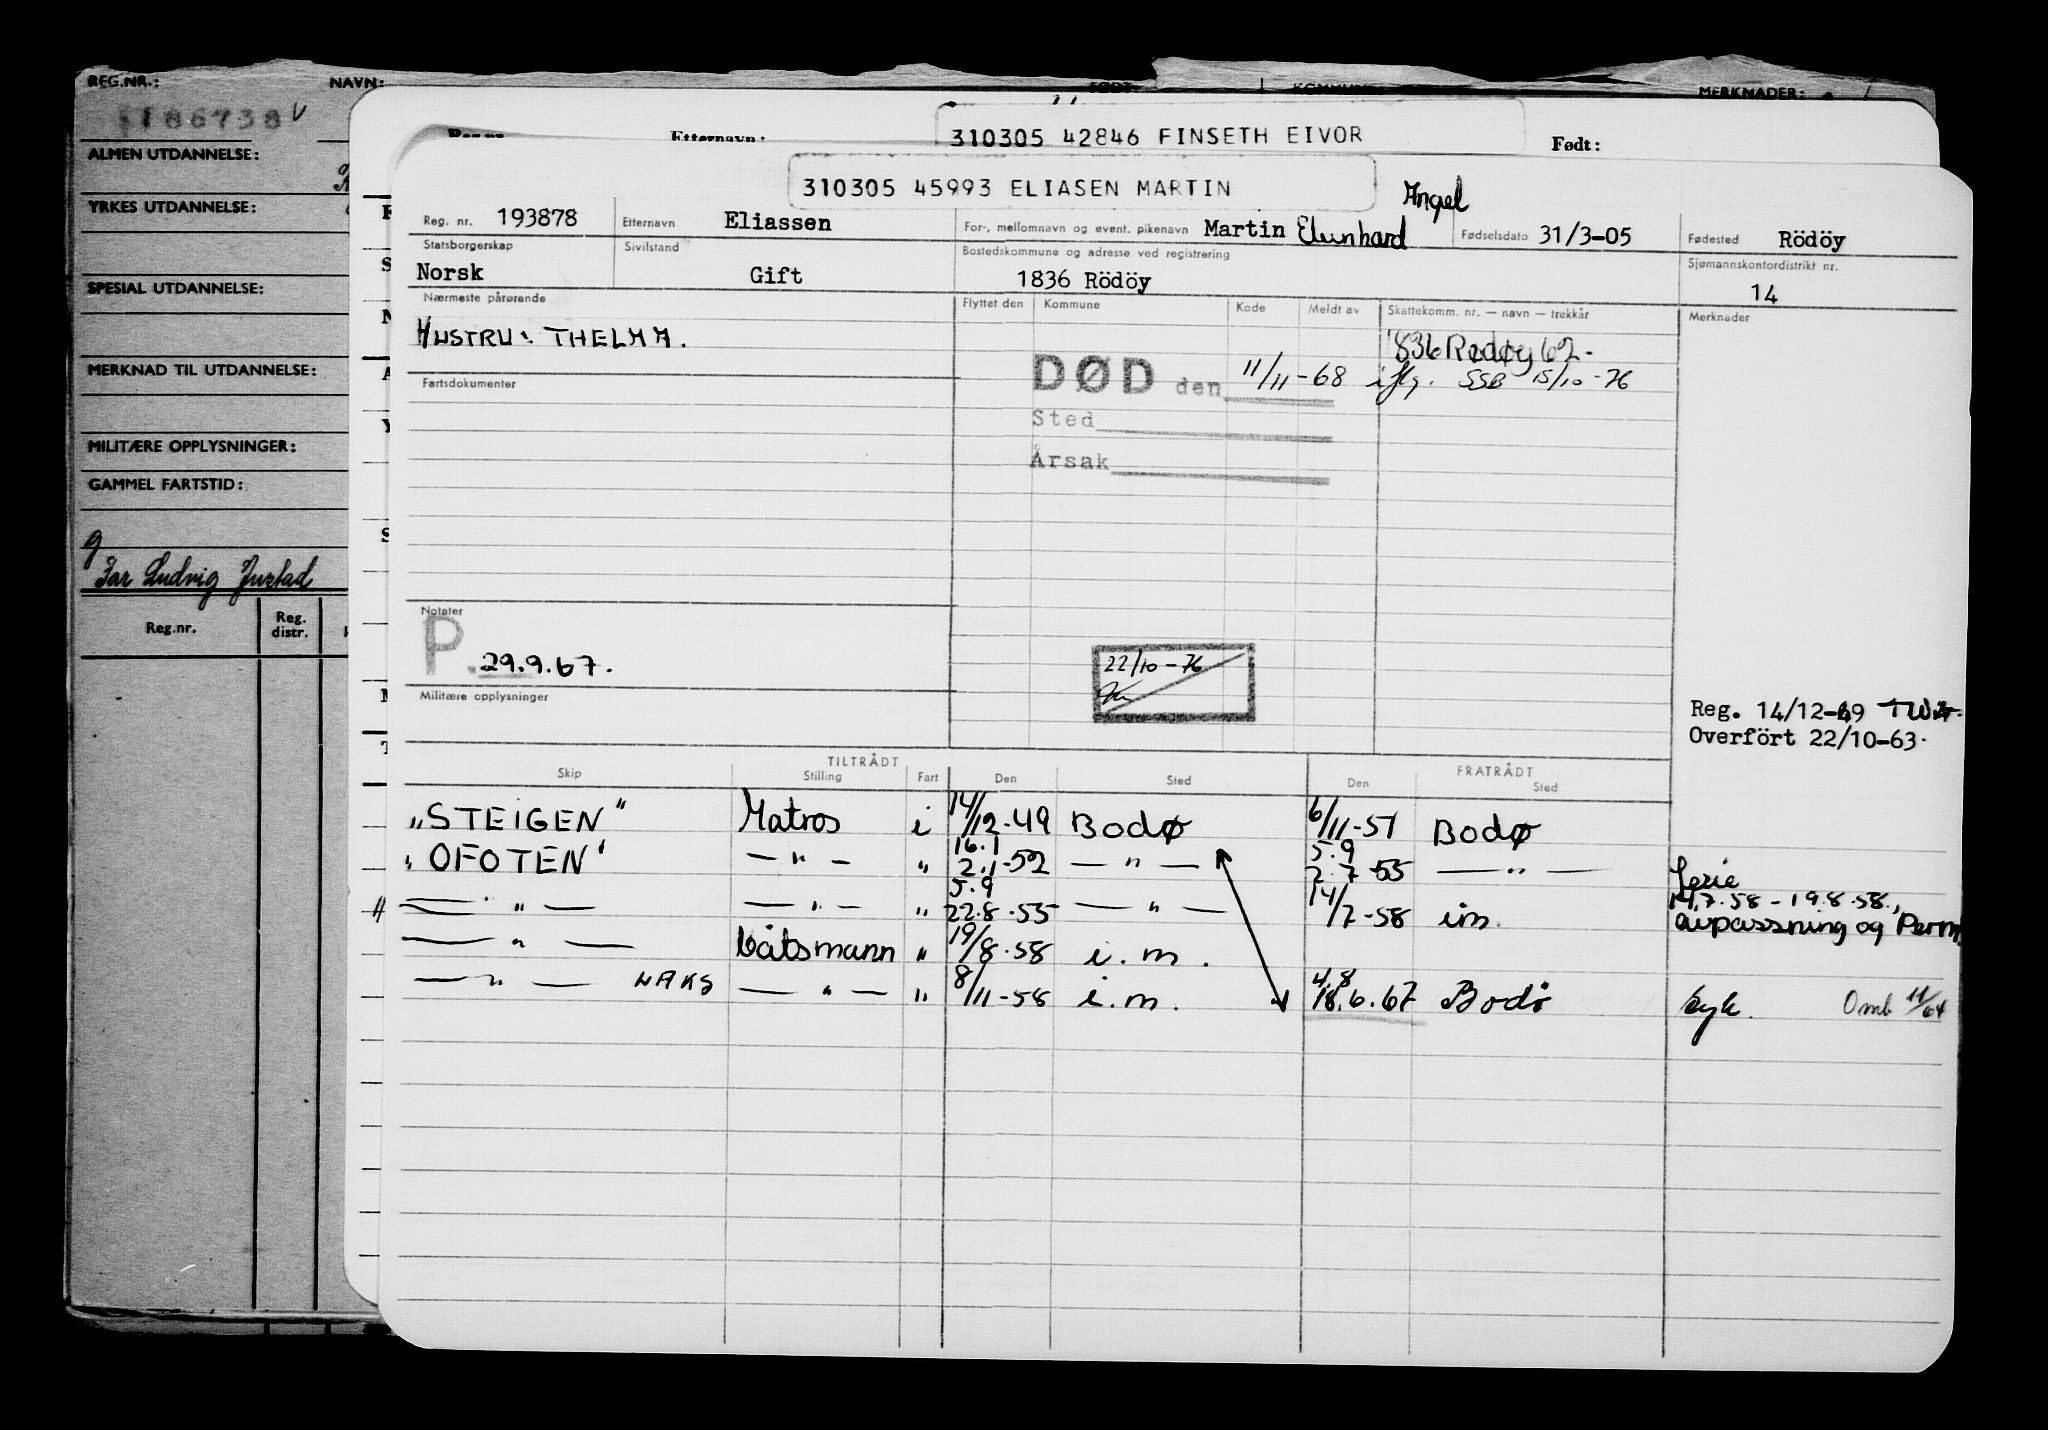 REG.NR.: NAVN: FØDT: KOMMUNE: MERKNADER:
186738 V
ALMEN UTDANNELSE:
YRKES UTDANNELSE:
SPESIAL UTDANNELSE:
MERKNAD TIL UTDANNELSE:
MILITÆRE OPPLYSNINGER:
GAMMEL FARTSTID:
g
Far Ludvig Justad
Reg.nr. Reg. distr.
Reg.nr. Etternavn: 310305 42846 FINSETH EIVOR Født:
310305 45993 ELIASEN MARTIN
Angel
Reg. nr. 193878 Etternavn Eliassen For-, mellomnavn og event. pikenavn Martin Fødselsdato 31/3-05 Fødested Rödöy
Statsborgerskap Sivilstand Bostedskommune og adresse ved registrering Sjømannskontordistrikt nr.
Norsk Gift 1836 Rödöy 14
Nærmeste pårørende Flyttet den Kommune Kode Meldt av Skattekomm. nr. — navn — trekkår Merknader
HUSTRU: THELMA. 1836 Rødøy 62.
Fartsdokumenter DØD den 11/11-68 iflg. SSB 15/10-76
Sted
Årsak
Notater
P. 29.9.67.
22/10-76
Militære opplysninger
Reg. 14/12-49
Overfört 22/10-63.
TILTRÅDT FRATRÅDT
Skip Stilling Fart Den Sted Den Sted
"STEIGEN" Matros i 14/12-49 Bodø 6/11-51 Bodø
16.1 5.9
"OFOTEN" — " — " 2.1-52 — " — 2.7-55 — " — Ferie
5.9 14.7.58 - 19.8.58.,
— " — — " — " 22.8.55 — " — 14/7-58 i.m. avpassning og Perm.
— " — båtsmann " 19/8-58 i.m.
4.8
— " — NAKS — " — " 8/11-58 i.m. 18.6.67 Bodø syk. Omb 11/64